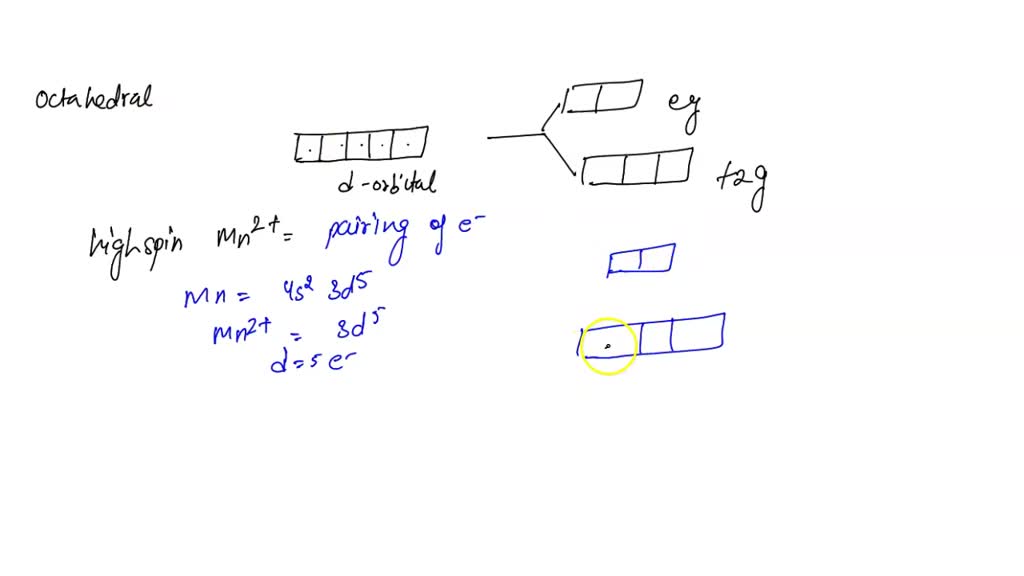 octahedral
eg
d-orbital
t2g
high spin Mn2+ = pairing of e-
Mn = 4s2 3d5
Mn2+ = 3d5
d = 5 e-